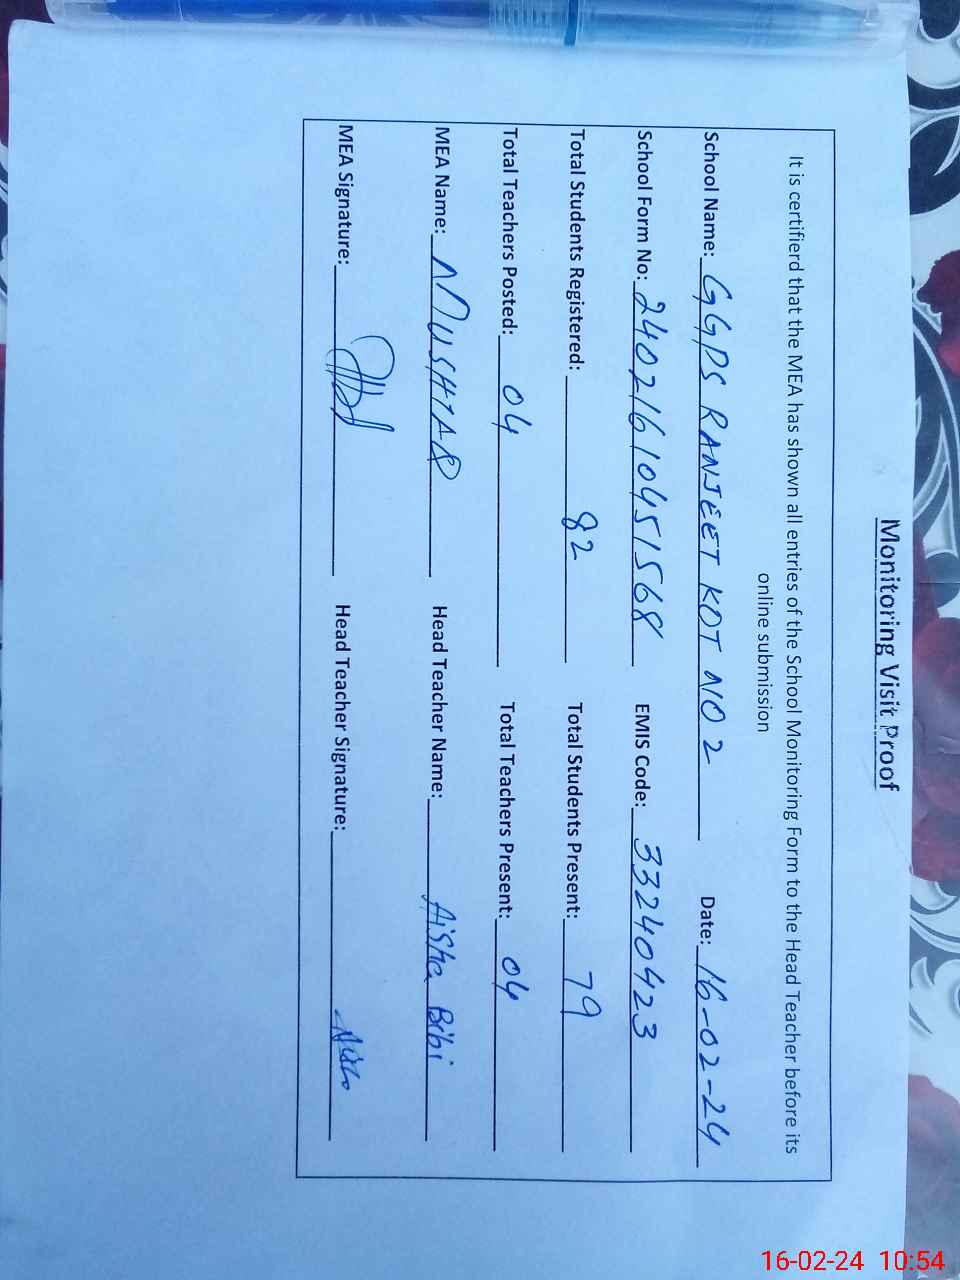 Monitoring Visit Proof
It is certifierd that the MEA has shown all entries of the School Monitoring Form to the Head Teacher before its
online submission
School Name: GGPS RANJEET KOT NO 2 Date: 16-02-24
School Form No: 24021610451568 EMIS Code: 33240423
Total Students Registered: 82 Total Students Present: 79
Total Teachers Posted: 04 Total Teachers Present: 04
MEA Name: MUSHTAQ Head Teacher Name: Aisha Bibi
MEA Signature: Head Teacher Signature:
16-02-24 10:54